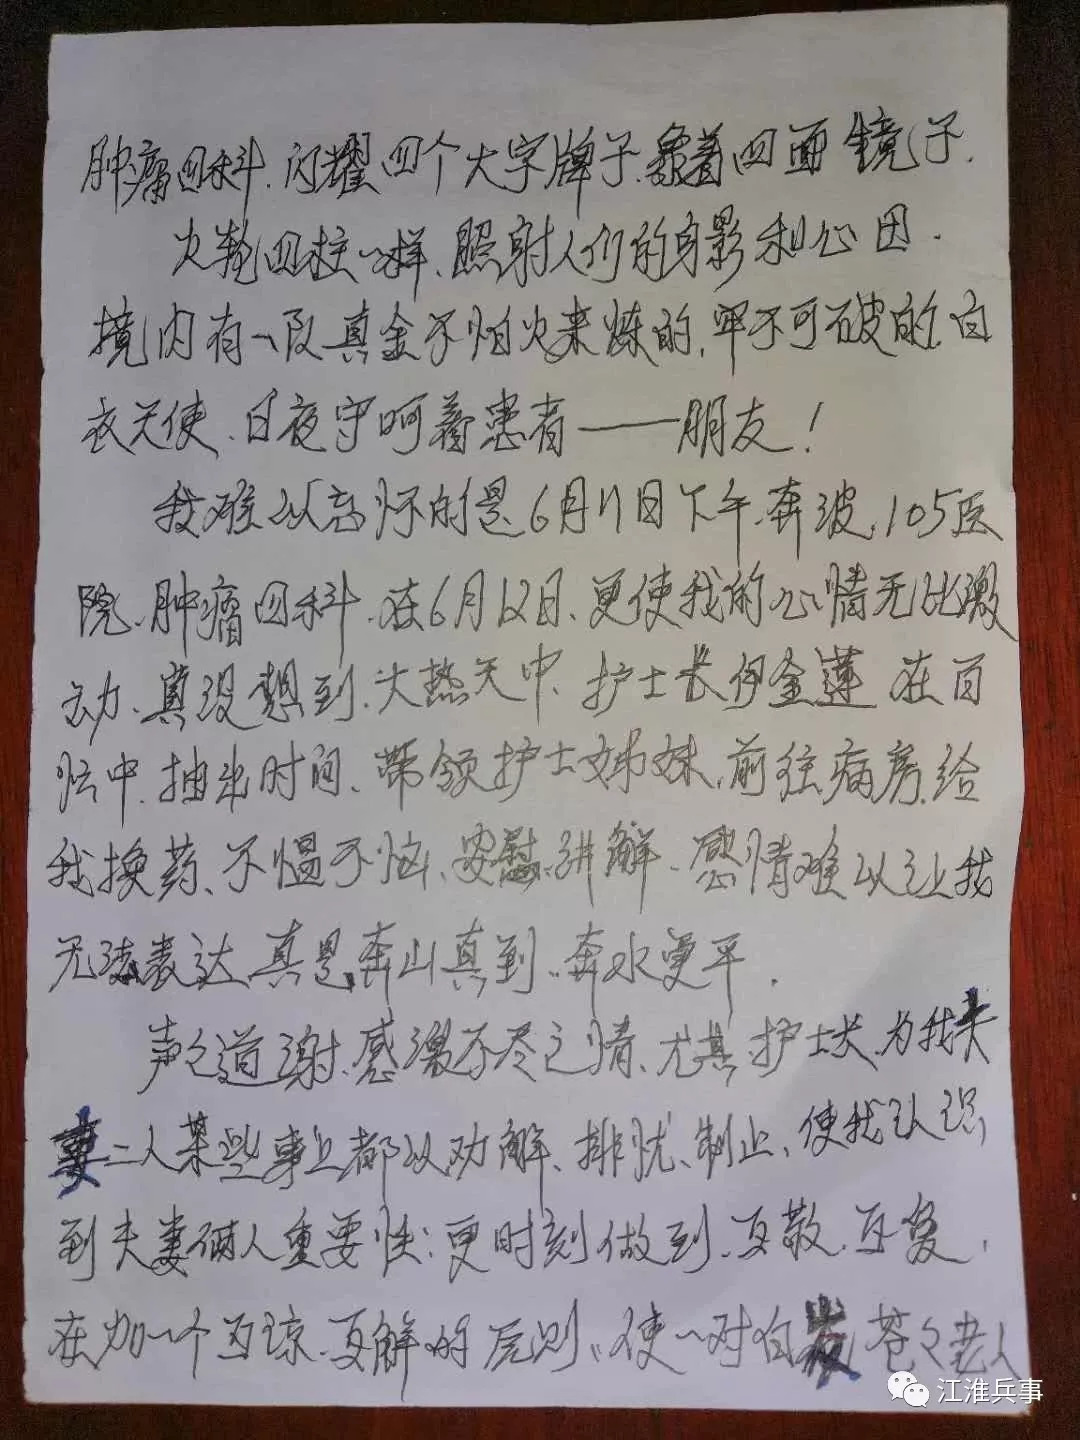 肿瘤四科.闪耀四个大字牌子.象着四面镜子.
火轮四柱一样、照射人们的身影和心田.
境内有一队真金不怕火来炼的,牢不可破的.白
衣天使、日夜守呵着患者——朋友!
我难以忘怀的是6月11日下午.奔波,105医
院、肿瘤四科.在6月12日、更使我的心情无比激
动、真没想到、大热天中、护士长伊金莲在百
忙中.抽出时间、带领护士姊妹,前往病房.给
我换药、不愠不恼、安慰.讲解、感情难以让我
无法表达、真是.奔山真到、奔水更平.
声々道谢、感激不尽之情、尤其.护士长、为我夫
妻二人某些事上都以劝解、排忧、制止、使我认识
到夫妻俩人重要性:更时刻做到、互敬.互爱,
在加一个互谅、互解的原则、使一对白发苍々老人
江淮兵事